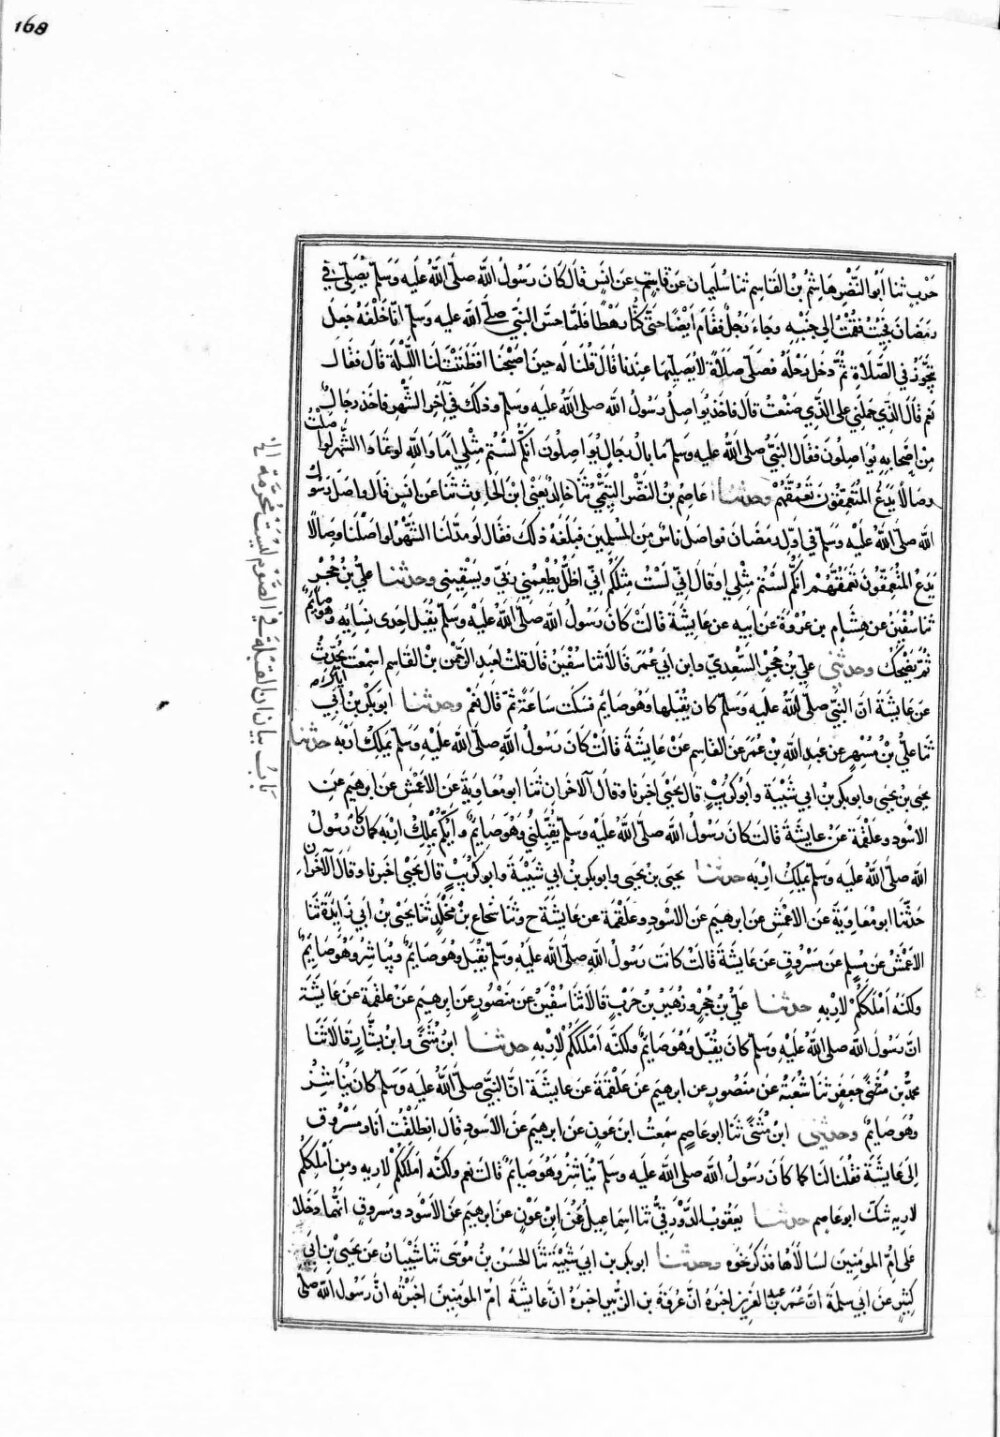 168
حرب ثنا ابو النَّضْر هاشم بن القاسم ثنا سليمان عن ثابت عن انس قال كان رسول الله صلى الله عليه وسلم يصلى فى
رمضان فجئت فقمت الى جنبه وجاء رجل فقام ايضا حتى كنا رهطا فلما حس النبى صلى الله عليه وسلم انا خلفه جعل
يتجوز فى الصلاة ثم دخل رحله فصلى صلاة لا يصليها عندنا قال قلنا له حين اصبحنا افطنت لنا الليلة قال فقال
نعم قال الذى حملنى على الذى صنعت قال فاخذ يواصل رسول الله صلى الله عليه وسلم وذلك فى آخر الشهر فاخذ رجال
من اصحابه يواصلون فقال النبى صلى الله عليه وسلم ما بال رجال يواصلون انكم لستم مثلى اما والله لو تمادّ الشهر لواصلت
وصالا يدع المتعمقون تعمقهم وحدثنا عاصم بن النضر التيمى ثنا خالد يعنى ابن الحارث ثنا عن انس قال واصل رسول
الله صلى الله عليه وسلم فى اول رمضان فواصل ناس من المسلمين فبلغه ذلك فقال لو مدّ لنا الشهر لواصلنا وصالا
يدع المتعمقون تعمقهم انكم لستم مثلى او قال انى لست مثلكم انى اظل يطعمنى ربى ويسقينى وحدثنا على بن حجر
ثنا سفين عن هشام بن عروة عن ابيه عن عايشة قالت كان رسول الله صلى الله عليه وسلم يقبل احدى نسايه وهو صايم
ثم تضحك وحدثنى على بن حجر السعدى وابن ابى عمر قالا ثنا سفين قال قلت لعبد الرحمن بن القاسم اسمعت اباك يحدث
عن عايشة ان النبى صلى الله عليه وسلم كان يقبلها وهو صايم فسكت ساعة ثم قال نعم وحدثنا ابو بكر بن ابى
ثنا على بن مسهر عن عبد الله بن عمر عن القاسم عن عايشة قالت كان رسول الله صلى الله عليه وسلم يملك اربه حدثنا
يحيى بن يحيى وابو بكر بن ابى شيبة وابو كريب قال يحيى اخبرنا وقال الآخران ثنا ابو معاوية عن الاعمش عن ابرهيم عن
الاسود وعلقمة عن عايشة قالت كان رسول الله صلى الله عليه وسلم يقبلنى وهو صايم وايكم يملك اربه كما كان رسول
الله صلى الله عليه وسلم يملك اربه حدثنا يحيى بن يحيى وابو بكر بن ابى شيبة وابو كريب قال يحيى اخبرنا وقال الآخران
حدثنا ابو معاوية عن الاعمش عن ابرهيم عن الاسود وعلقمة عن عايشة ح وثنا شجاع بن مخلد ثنا يحيى بن ابى زايدة ثنا
الاعمش عن مسلم عن مسروق عن عايشة قالت كانت رسول الله صلى الله عليه وسلم يقبل وهو صايم ويباشر وهو صايم
ولكنه املككم لاربه حدثنا على بن حجر وزهير بن حرب قالا ثنا سفين عن منصور عن ابرهيم عن علقمة عن عايشة
ان رسول الله صلى الله عليه وسلم كان يقبل وهو صايم ولكنه املككم لاربه حدثنا ابن مثنى وابن بشار قالا ثنا
محمد بن مثنى جعفر ثنا شعبة عن منصور عن ابرهيم عن علقمة عن عايشة ان النبى صلى الله عليه وسلم كان يباشر
وهو صايم وحدثنى ابن مثنى ثنا ابو عاصم سمعت ابن عون عن ابرهيم عن الاسود قال انطلقت انا ومسروق
الى عايشة فقلنا لنا كما كان رسول الله صلى الله عليه وسلم يباشر وهو صايم قالت نعم ولكنه املككم لاربه ومن املككم
لاربه شك ابو عاصم حدثنا يعقوب الدورقى ثنا اسماعيل عن ابن عون عن ابرهيم عن الاسود ومسروق انهما دخلا
على ام المومنين لسالاها فذكر نحوه وحدثنا ابو بكر بن ابى شيبة ثنا الحسن بن موسى ثنا شيبان عن يحيى بن ابى
كثير عن ابى سلمة ان عمر بن عبد العزيز اخبره ان عروة بن الزبير اخبره ان عايشة ام المومنين اخبرته ان رسول الله صلى
باب بيان ان القبلة فى الصوم ليست محرمة الخ